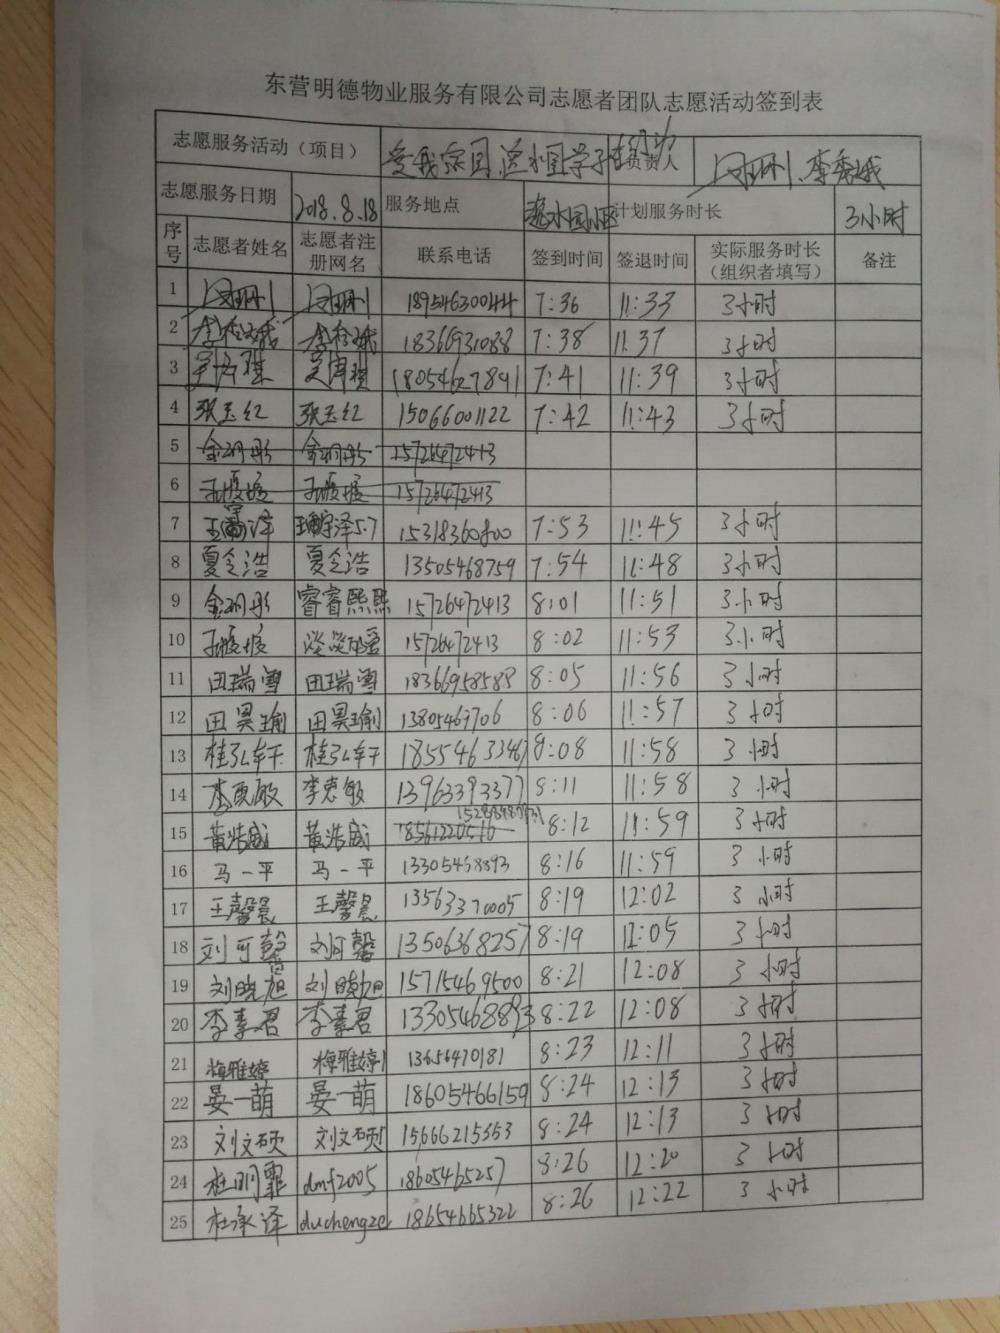 东营明德物业服务有限公司志愿者团队志愿活动签到表
志愿服务活动（项目） 爱我家园 学子 负责人 李秀娥
志愿服务日期 2018.8.18 服务地点 水园小区 计划服务时长 3小时
序号 志愿者姓名 志愿者注册网名 联系电话 签到时间 签退时间 实际服务时长（组织者填写） 备注
1 18954630044 7:36 11:33 3小时
2 18366931088 7:38 11:37 3小时
3 18054627891 7:41 11:39 3小时
4 张玉红 张玉红 15066001122 7:42 11:43 3小时
5 15726472413
6 15726472413
7 15318360800 7:53 11:45 3小时
8 夏令浩 夏令浩 13505468759 7:54 11:48 3小时
9 睿睿熙熙 15726472413 8:01 11:51 3小时
10 15726472413 8:02 11:53 3小时
11 田瑞雪 田瑞雪 18366958588 8:05 11:56 3小时
12 田昊瑜 田昊瑜 13805467706 8:06 11:57 3小时
13 桂弘轩 桂弘轩 18554633467 8:08 11:58 3小时
14 李惠敏 李惠敏 13963393377 8:11 11:58 3小时
15 黄浩威 黄浩威 18561220516 8:12 11:59 3小时
16 马一平 马一平 13305468893 8:16 11:59 3小时
17 王馨晨 王馨晨 13563370005 8:19 12:02 3小时
18 刘可馨 刘可馨 13506368257 8:19 12:05 3小时
19 刘晓旭 刘晓旭 15715469500 8:21 12:08 3小时
20 李素君 李素君 13305468893 8:22 12:08 3小时
21 梅雅婷 梅雅婷 13656470181 8:23 12:11 3小时
22 晏一萌 晏一萌 18605466159 8:24 12:13 3小时
23 刘文硕 刘文硕 15666215353 8:24 12:13 3小时
24 杜明霏 dmf2005 18605465257 8:26 12:20 3小时
25 杜承泽 duchengze 18654665322 8:26 12:22 3小时